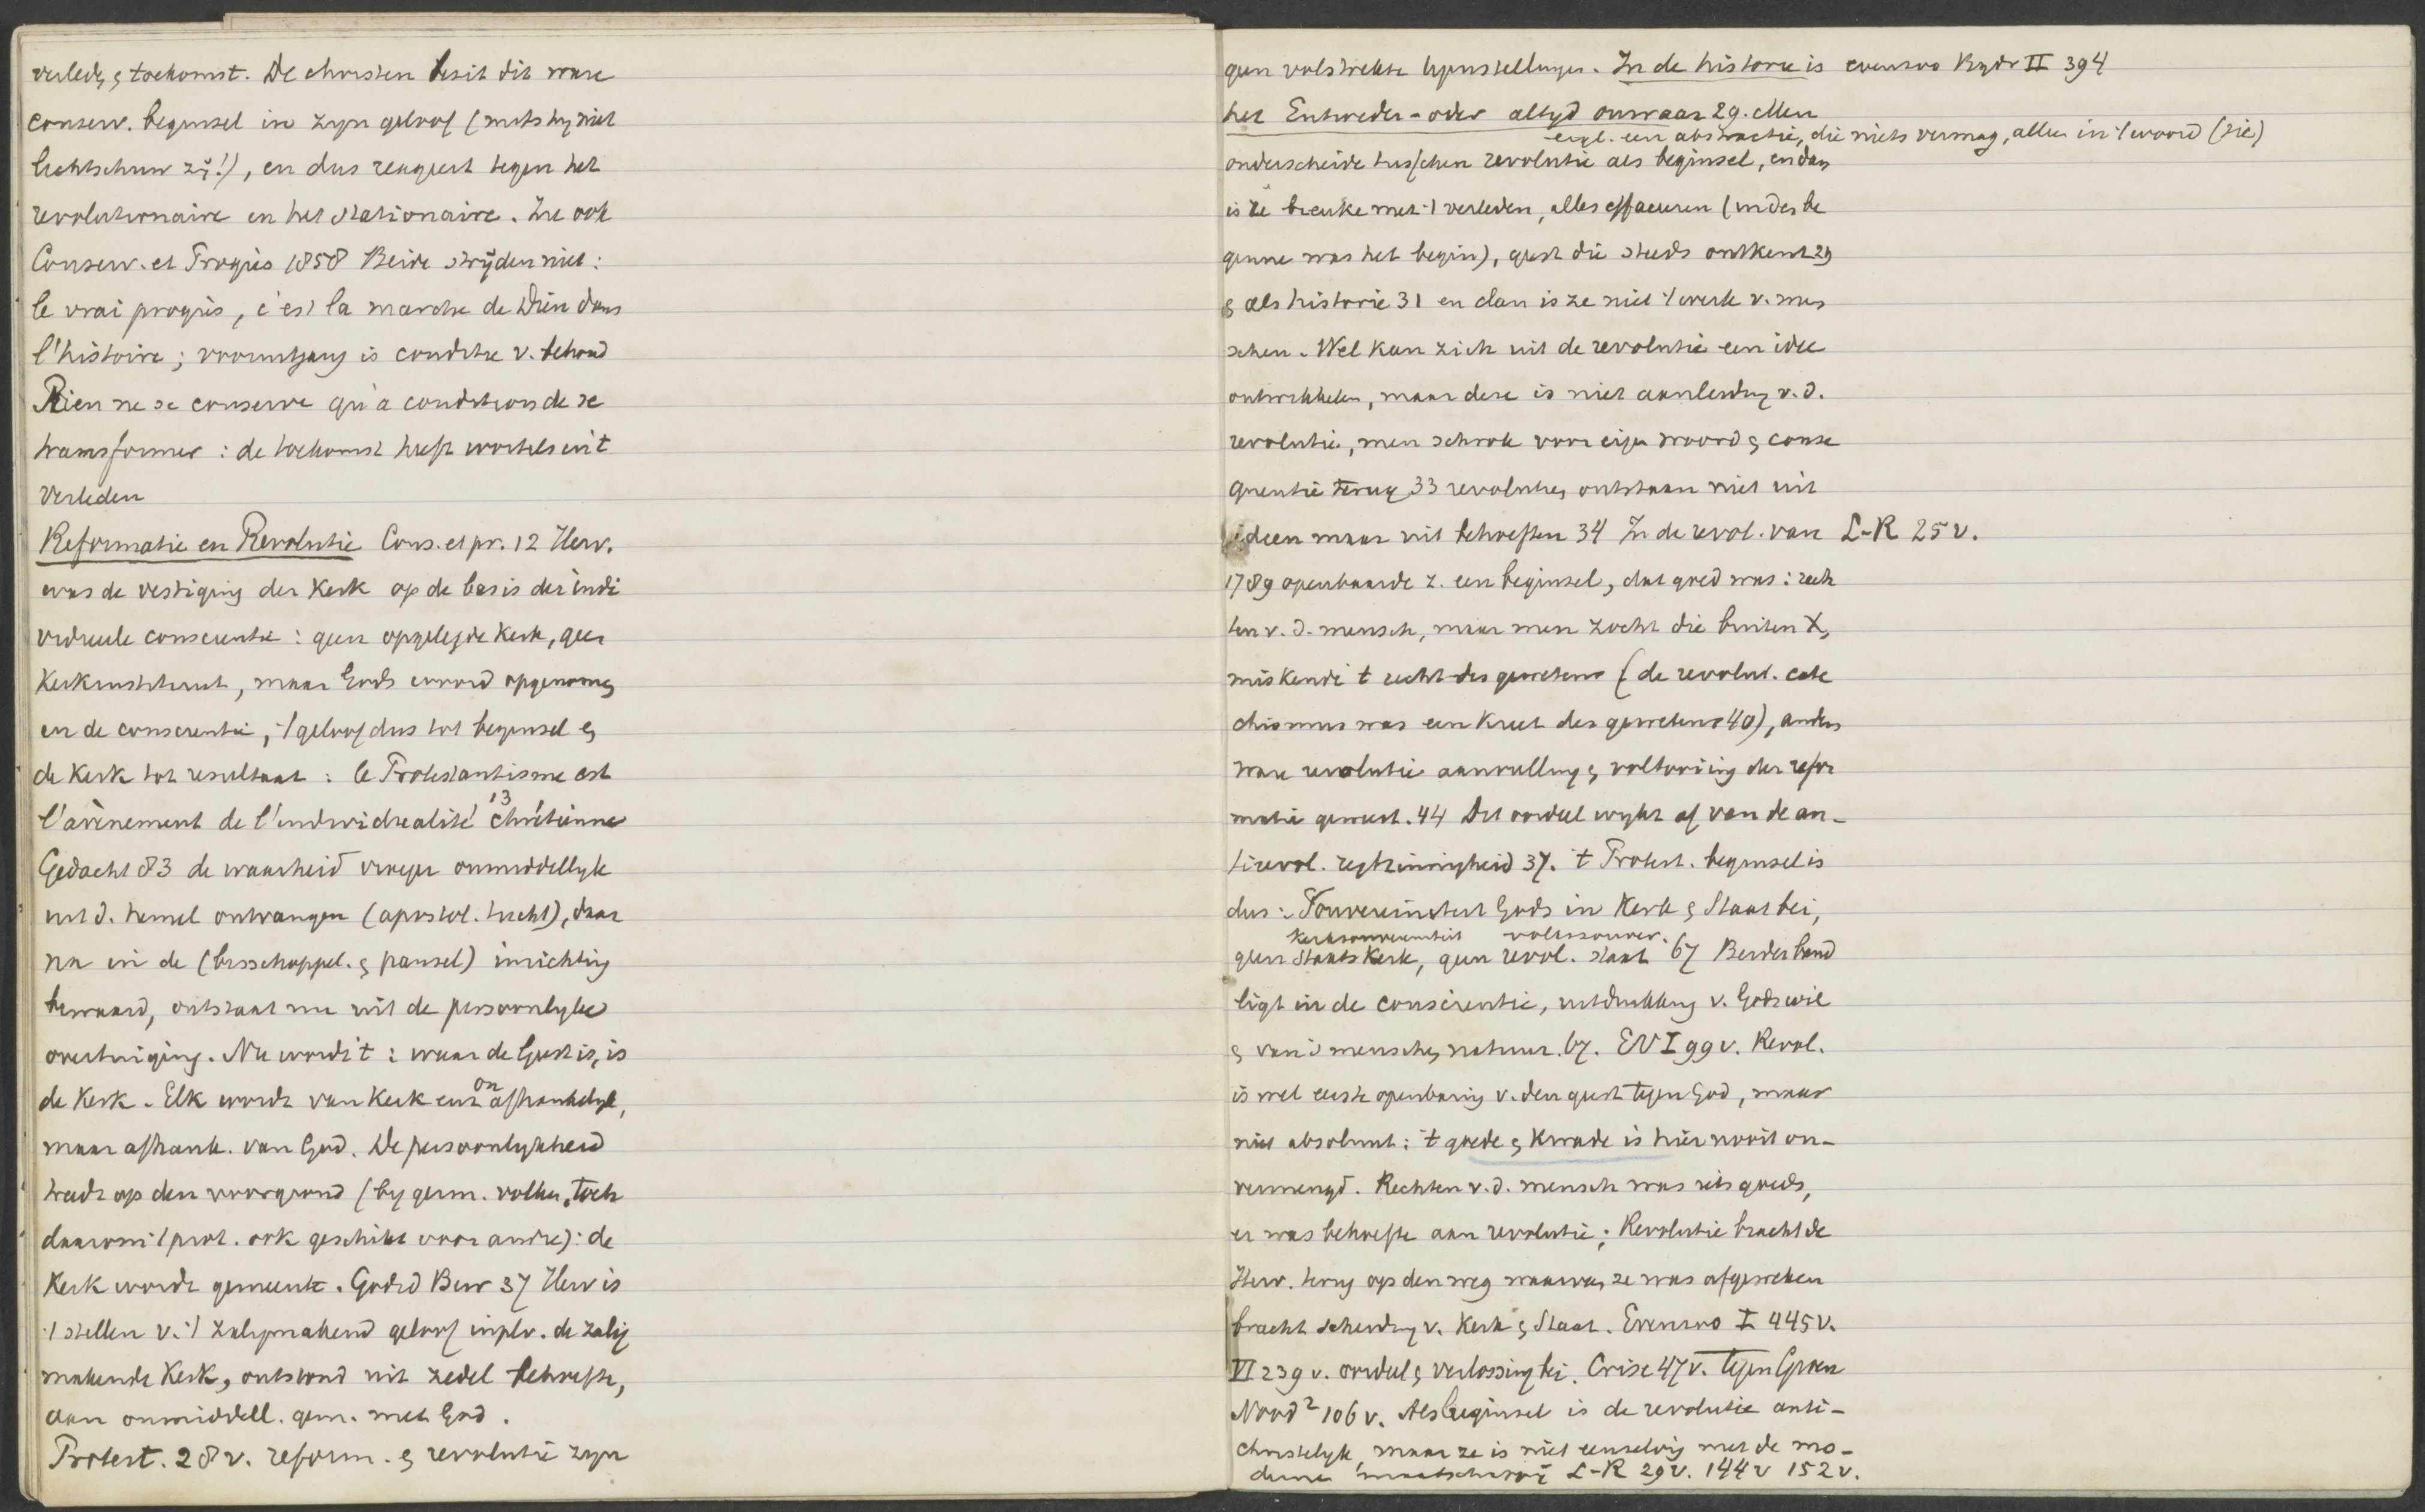 verled. & toekomst. De christen bezit dit ware
conserv. beginsel in zyn geloof (mits hy niet
lichtschuw zÿ!), en dus reageert tegen het
revolutionaire en het stationaire. Zie ook
Conserv. et Progrès 1858 Beide strÿden niet:
le vrai progrès, c'est la marche de Dieu dans
l'histoire; vooruitgang is conditie v. behoud
Rien ne se conserve qu'à condition de se
transformer: de toekomst heeft wortels in 't
verleden
Reformatie en Revolutie Cons. et pr. 12 Herv.
was de vestiging der Kerk op de basis der indi
vidueele conscientie: geen opgelegde Kerk, geen
Kerkinstituut, maar Gods woord opgenomen
in de conscientie, 't geloof dus tot beginsel &
de Kerk tot resultaat: le Protestantisme est
l'avènement de l'individualité chrétienne 13
Gedacht 83 de waarheid vroeger onmiddellyk
uit d. hemel ontvangen (apostol. tucht), daar
na in de (bisschoppel. & pausel) inrichting
bewaard, ontstaat nu uit de persoonlyke
overtuiging. Nu wordt 't: waar de Geest is, is
de Kerk. Elk wordt van Kerk enz onafhankelyk,
maar afhank. van God. De persoonlykheid
treedt op den voorgrond (by germ. volken, toch
daarom 't prot. ook geschikt voor andre): de
Kerk wordt gemeente. Godsd Bew 37 Herv is
't stellen v. 't zaligmakend geloof in plv. de zalig
makende Kerk, ontstond uit zedel behoefte,
aan onmiddell. gem. met God.
Protest. 28 v. reform. & revolutie zyn
geen volstrekte tegenstellingen. In de historie is evenzoo II 394
het Entweder-oder altyd onwaar 29. Men
eigl. een abstractie, die niets vermag, alleen in 't woord (sic)
onderscheide tusschen revolutie als beginsel, en dan
is ze breuke met 't verleden, alles effaceeren (in des be
ginne was het begin), geest die steeds ontkent 29
& als historie 31 en dan is ze niet 't werk v. men
schen. Wel kan zich uit de revolutie een idee
ontwikkelen, maar deze is niet aanleiding v. d.
revolutie, men schrok voor eigen woord & conse
quentie terug 33 revoluties ontstaan niet uit
ideen maar uit behoeften 34 In de revol. van L-R 25 v.
1789 openbaarde z. een beginsel, dat goed was: rech
ten v. d. mensch, maar men zocht die buiten X,
miskende 't recht des gewetens (de revolut. cate
chismus was een kreet des gewetens 40), anders
ware revolutie aanvulling & voltooiing der refor
matie geweest. 44 Dit oordeel wykt af van de an-
tirevol. regtzinnigheid 37. 't Protest. beginsel is
dus: Souvereiniteit Gods in Kerk & Staat bei,
Kerksouvereiniteit volkssouver.
geen Staatskerk, geen revol. staat 67 Beider band
ligt in de conscientie, uitdrukking v. Gods wil
& van 's menschen natuur. 67. EV I 99 v. Revol.
is wel eerste openbaring v. den geest tegen God, maar
niet absoluut: 't goede & kwade is hier nooit on-
vermengd. Rechten v. d. mensch was iets goeds,
er was behoefte aan revolutie; Revolutie bracht de
Herv. terug op den weg waarvan ze was afgeweken
bracht scheiding v. Kerk & Staat. Evenzoo I 445 v.
VI 239 v. oordeel & verlossing bei. Crise 47 v. Tegen Groen
Nood² 106 v. Als beginsel is de revolutie anti-
christelyk, maar ze is niet eenzelvig met de mo-
derne maatschappÿ L-R 29 v. 144 v 152 v.